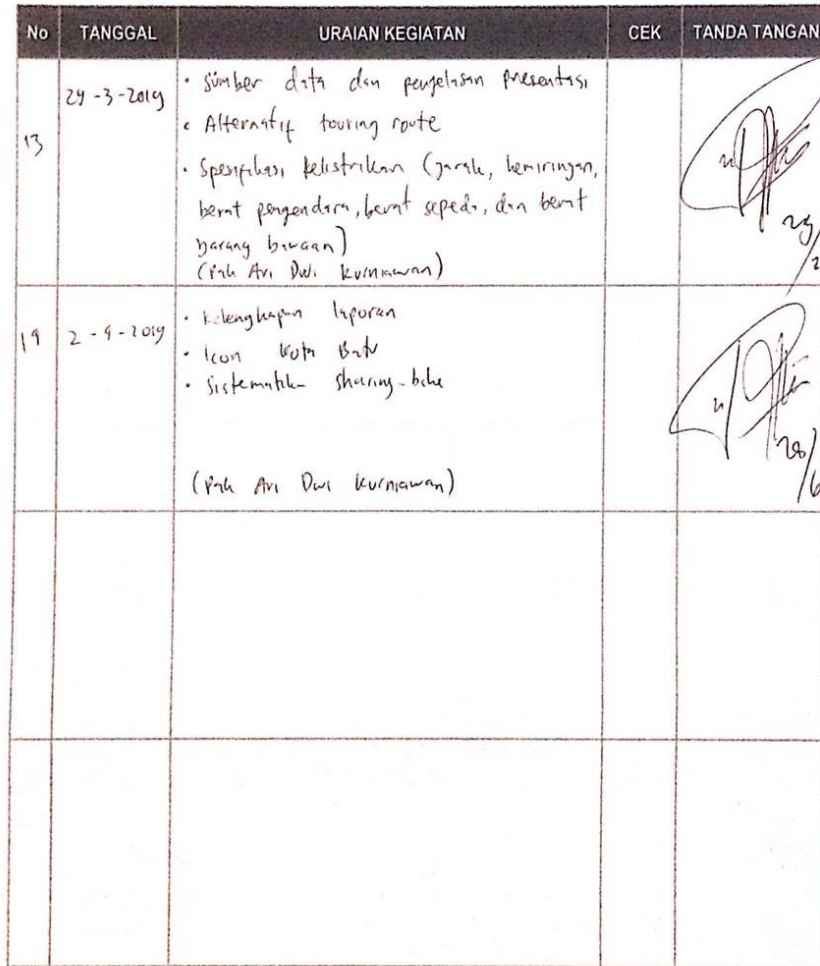 No TANGGAL URAIAN KEGIATAN CEK TANDA TANGAN
13 29-3-2019 • Sumber data dan penjelasan presentasi
• Alternatif touring route
• Spesifikasi kelistrikan (jarak, kemiringan,
berat pengendara, berat sepeda, dan berat
barang bawaan)
(Pak Ari Dwi Kurniawan)
14 2-4-2019 • Kelengkapan laporan
• Icon Kota Batu
• Sistematika sharing-bike
(Pak Ari Dwi Kurniawan)
28/6